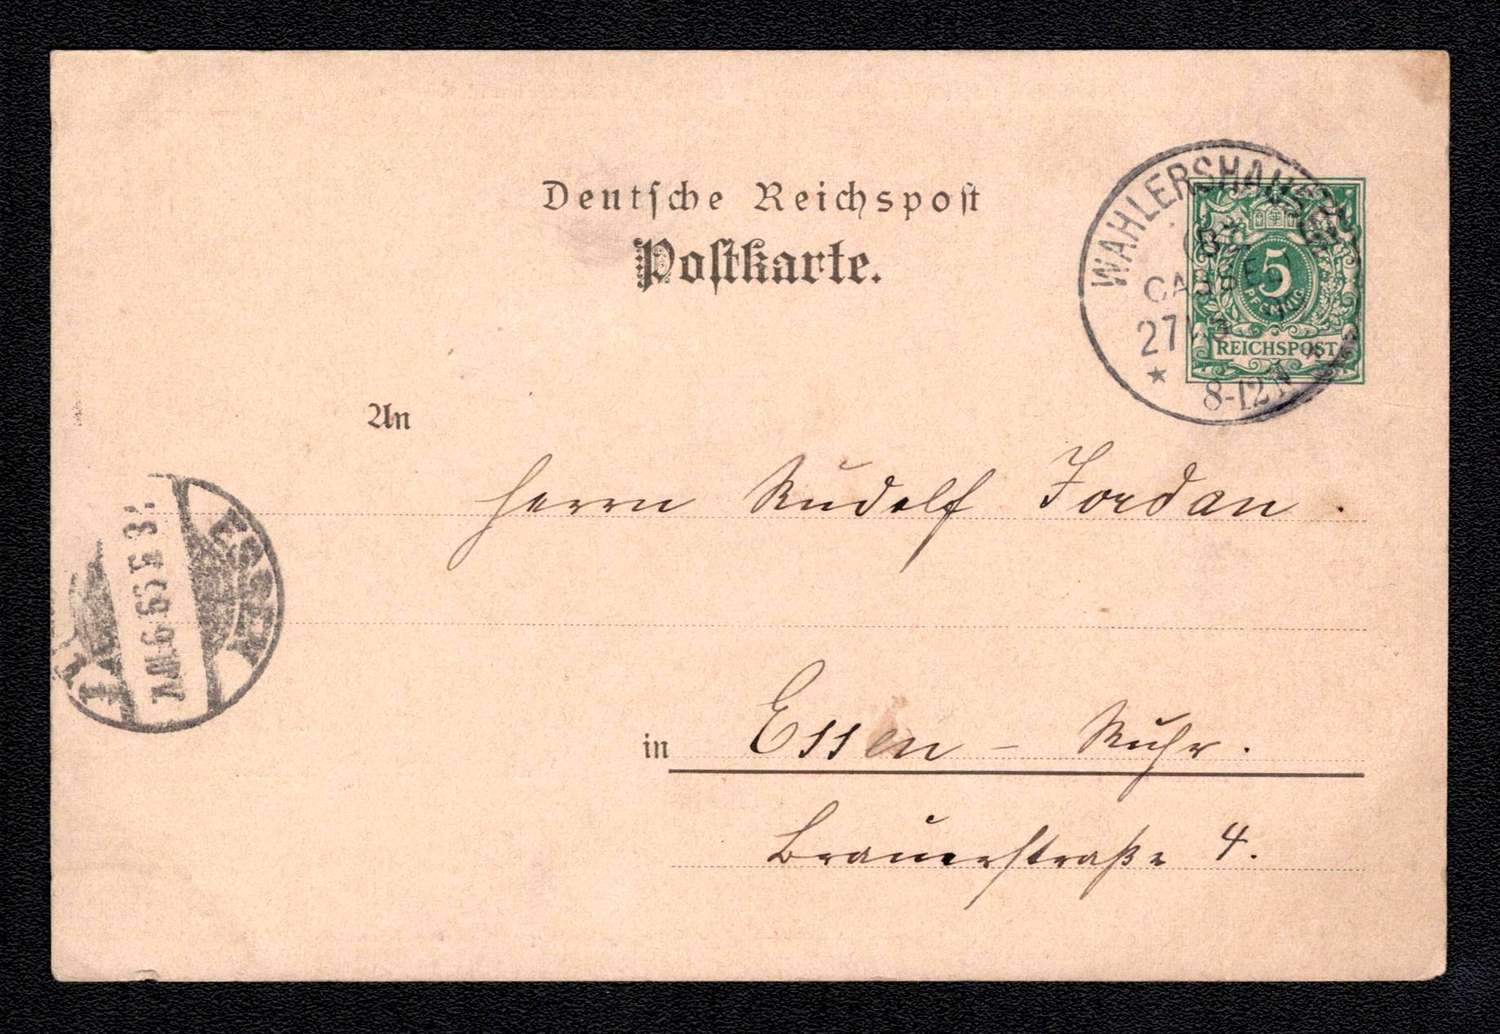 Deutsche Reichspost
Postkarte.
WAHLERSHAUSEN
(BZ
CASSEL)
27
8-12 N
5
PFENNIG
REICHSPOST
An
Herrn Rudolf Jordan.
ESSEN
in Essen - Ruhr.
Brauerstraße 4.